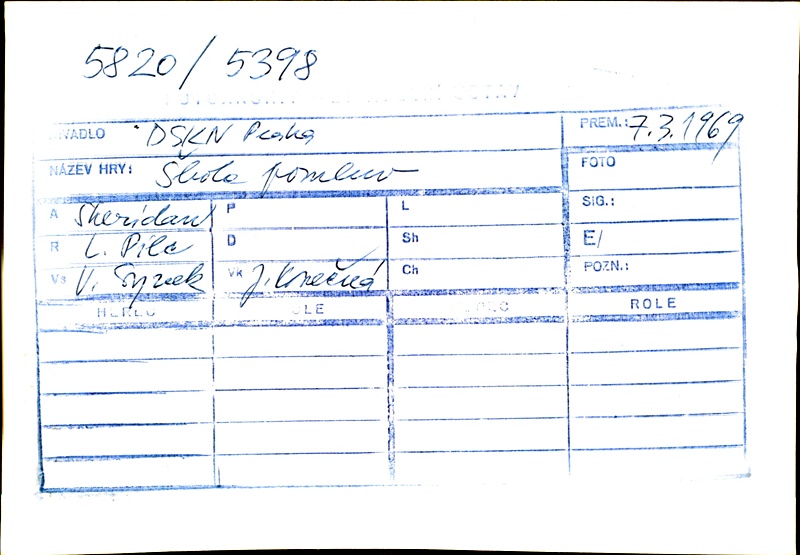 5820 / 5398
DIVADLO DSKN Praha PREM.: 7.3.1969
NÁZEV HRY: Škola pomluv FOTO
A Sheridan P L SIG.:
R L. Pila D Sh E/
Vs Vk J. Konečná Ch POZN.:
HEREC ROLE HEREC ROLE